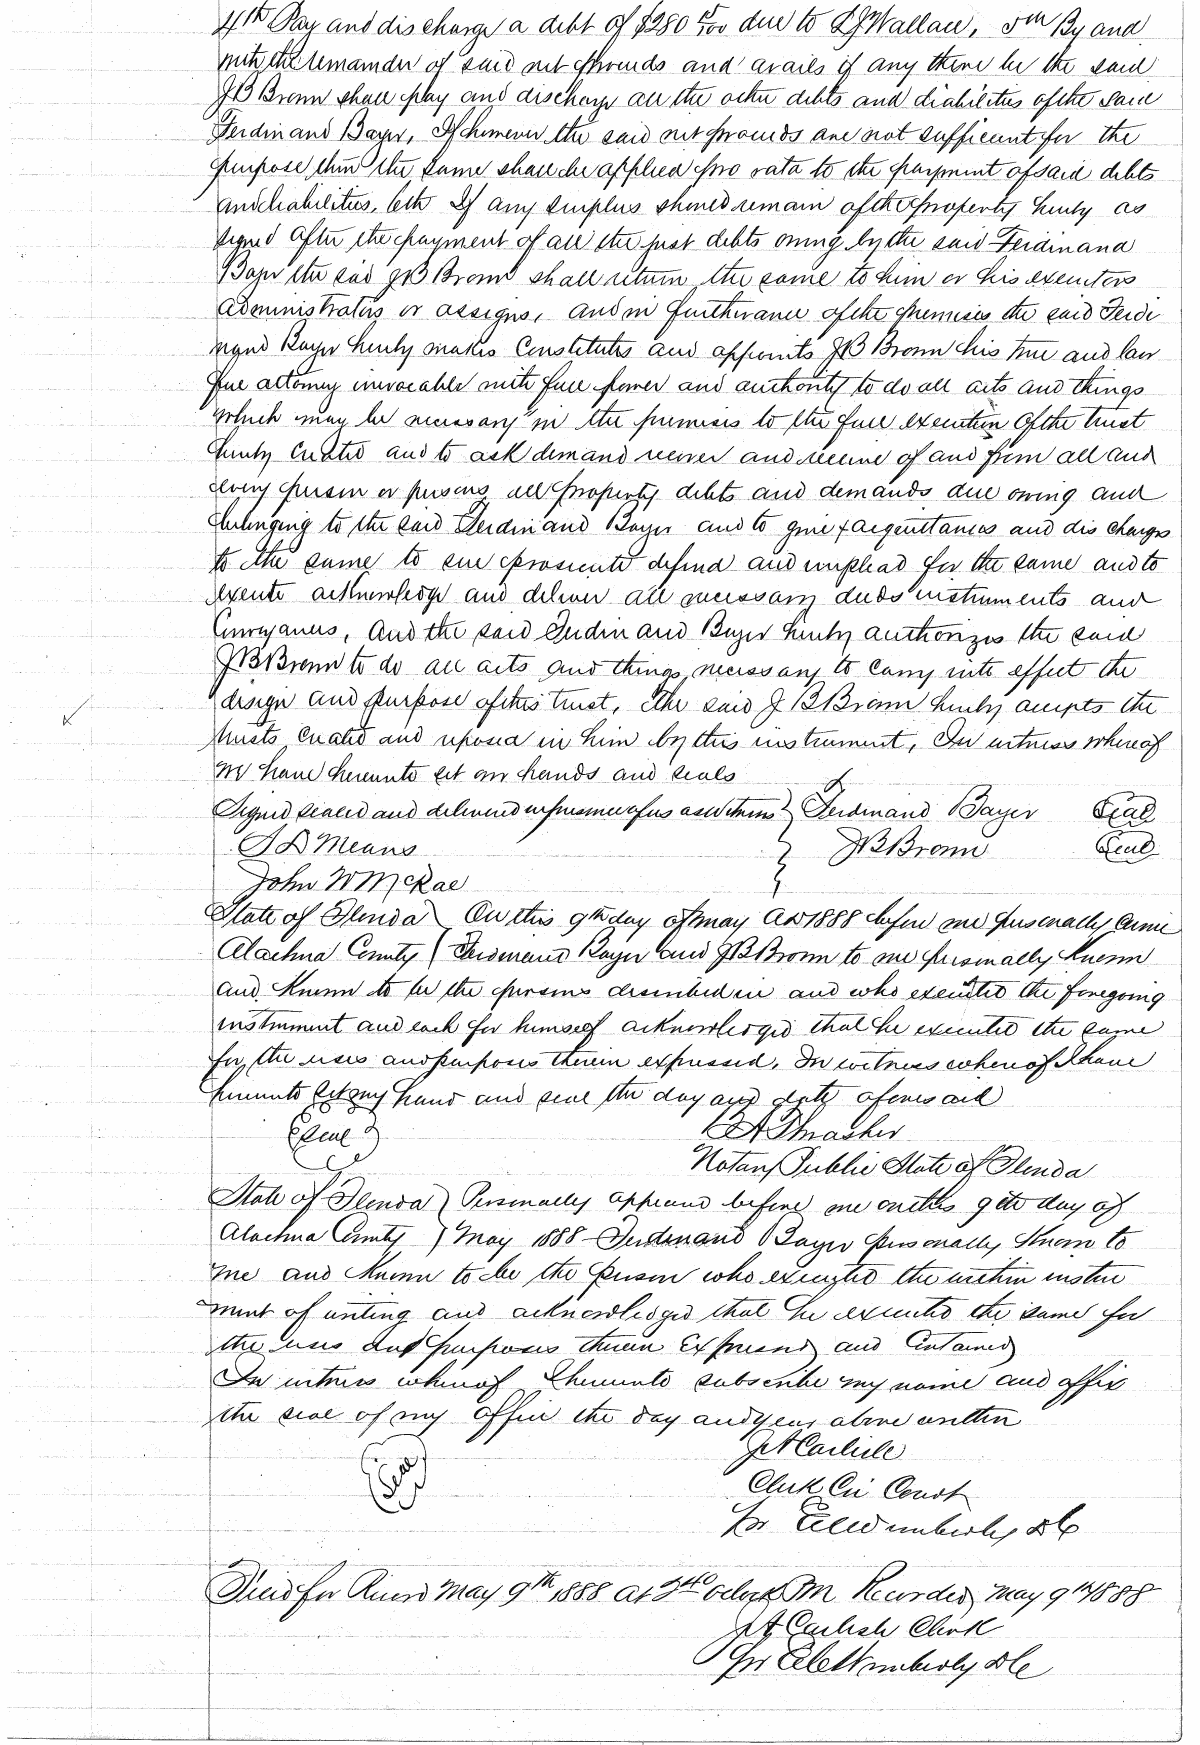 4th Pay and discharge a debt of $280 due to Wallace, 5th By and
with the remainder of said net proceeds and avails if any there be the said
JB Brown shall pay and discharge all the other debts and liabilities of the said
Ferdinand Bayer, If however the said net proceeds are not sufficient for the
purpose then the same shall be applied pro rata to the payment of said debts
and liabilities, 6th If any surplus should remain of the property hereby as
signed after the payment of all the just debts owing by the said Ferdinand
Bayer the said JB Brown shall return the same to him or his executors
administrators or assigns, and in furtherance of the premises the said Ferdi
nand Bayer hereby makes Constitutes and appoints JB Brown his true and law
ful attorney irrevocable with full power and authority to do all acts and things
which may be necessary in the premises to the full execution of the trust
hereby created and to ask demand recover and receive of and from all and
every person or persons all property debts and demands due owing and
belonging to the said Ferdinand Bayer and to give acquittances and discharges
to the same to sue prosecute defend and implead for the same and to
execute acknowledge and deliver all necessary deeds instruments and
Conveyances, And the said Ferdinand Bayer hereby authorizes the said
JB Brown to do all acts and things necessary to carry into effect the
design and purpose of this trust, The said J B Brown hereby accepts the
trusts created and reposed in him by this instrument, In witness whereof
we have hereunto set our hands and seals
Signed sealed and delivered in presence of us as witness Ferdinand Bayer Seal
Means JB Brown Seal
John W McRae
State of Florida On this 9th day of May AD 1888 before me personally came
Alachua County Ferdinand Bayer and JB Brown to me personally known
and known to be the persons described in and who executed the foregoing
instrument and each for himself acknowledged that he executed the same
for the uses and purposes therein expressed, In witness whereof I have
hereunto set my hand and seal the day and date aforesaid
Seal Thrasher
Notary Public State of Florida
State of Florida Personally appeared before me on this 9th day of
Alachua County May 1888 Ferdinand Bayer personally known to
me and known to be the person who executed the within instru
ment of writing and acknowledged that he executed the same for
the uses and purposes therein Expressed and Contained
In witness whereof I hereunto subscribe my name and affix
the seal of my office the day and year above written
Seal J A Carlisle
Clerk Cir Court
Wimberly DC
Filed for Record May 9th 1888 at 3 oclock PM Recorded May 9th 1888
J A Carlisle Clerk
Wimberly DC